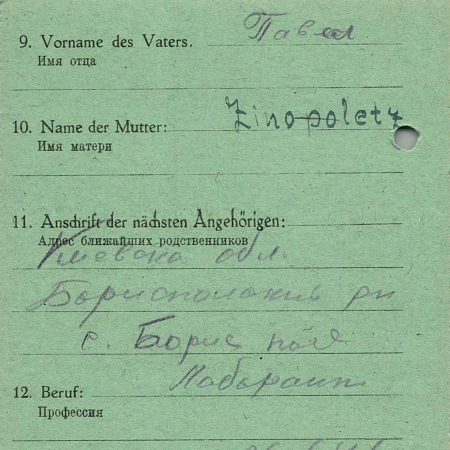 9. Vorname des Vaters. Павел
Имя отца
Zinopoletz
10. Name der Mutter:
Имя матери
11. Anschrift der nächsten Angehörigen:
Адрес ближайших родственников
Киевска обл.
Бориспольский рн
с. Борис поле
Лаборант
12. Beruf:
Профессия